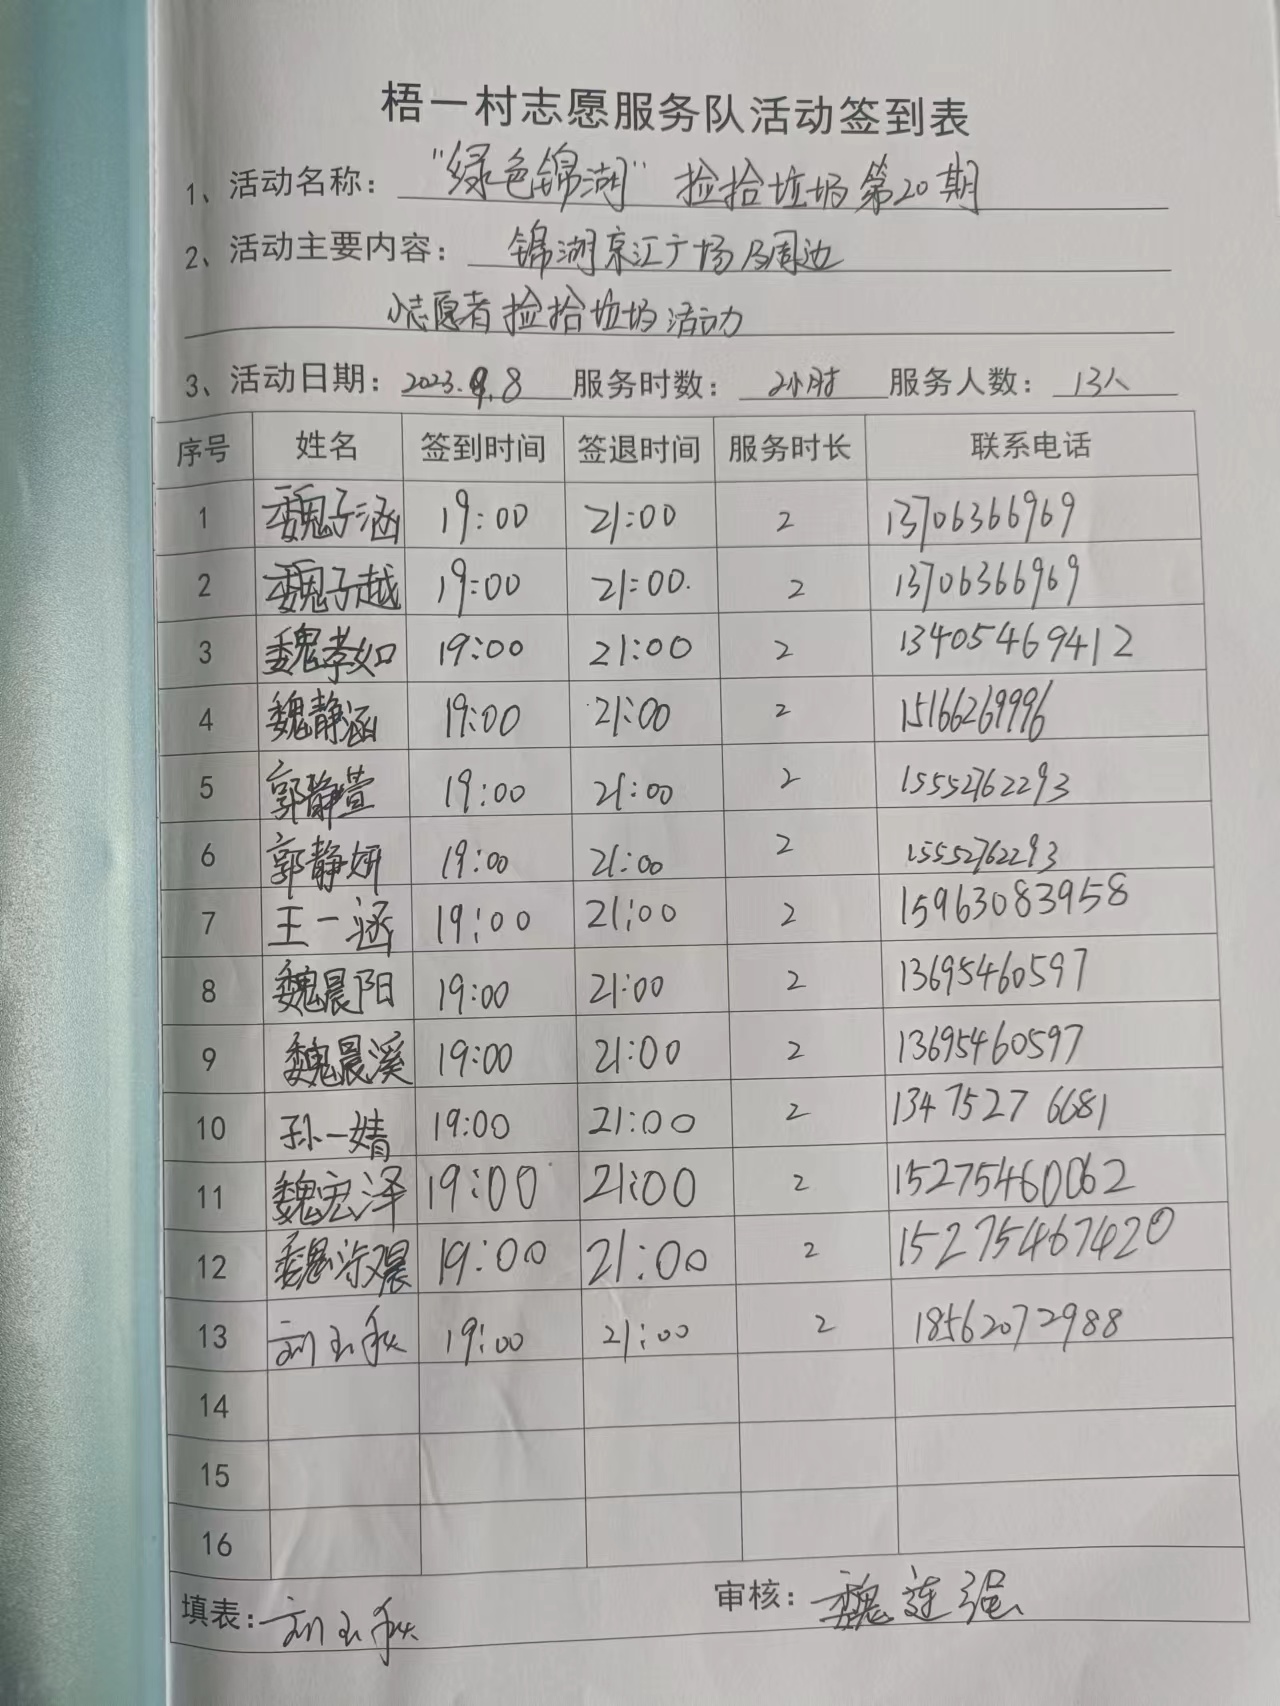 梧一村志愿服务队活动签到表
1、活动名称：“绿色锦湖” 捡拾垃圾第20期
2、活动主要内容：锦湖京江广场及周边
小志愿者捡拾垃圾活动
3、活动日期：2023.9.8 服务时数：2小时 服务人数：13人
序号 姓名 签到时间 签退时间 服务时长 联系电话
1 魏子涵 19:00 21:00 2 13706366969
2 魏子越 19:00 21:00. 2 13706366969
3 魏孝如 19:00 21:00 2 13405469412
4 魏静涵 19:00 21:00 2 15166269996
5 郭静萱 19:00 21:00 2 15552762293
6 郭静妍 19:00 21:00 2 15552762293
7 王一涵 19:00 21:00 2 15963083958
8 魏晨阳 19:00 21:00 2 13695460597
9 魏晨溪 19:00 21:00 2 13695460597
10 孙一婧 19:00 21:00 2 134 7527 6681
11 魏宏泽 19:00 21:00 2 15275460062
12 魏 晨 19:00 21:00 2 15275467420
13 刘玉秋 19:00 21:00 2 18562072988
14
15
16
填表：刘玉秋 审核：魏连强